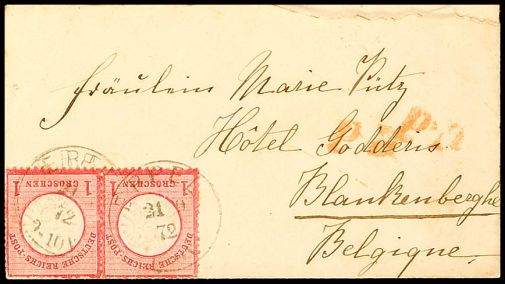 Fräulein Marie Pütz
Hôtel Godderis
Blankenberghe
Belgique.
1 GROSCHEN 1
DEUTSCHE REICHS-POST
1 GROSCHEN 1
DEUTSCHE REICHS-POST
21
72
72